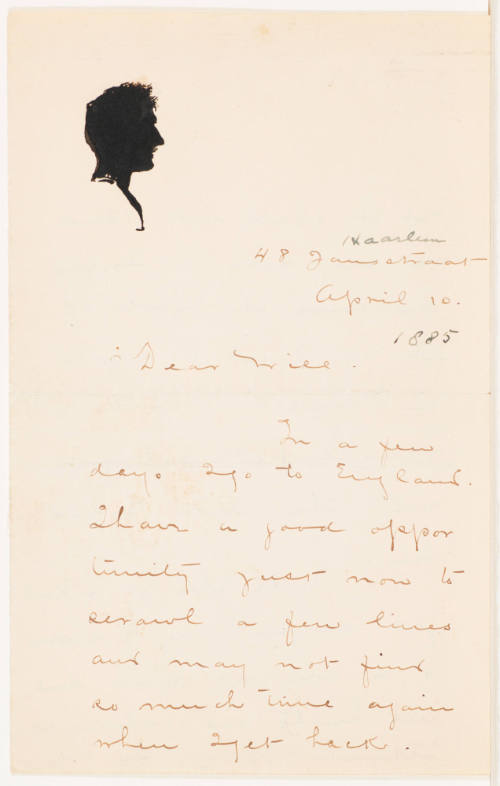 Haarlem
48 Jansstraat
April 10.
1885
Dear Will.
In a few
days I go to England.
I have a good oppor
tunity just now to
scrawl a few lines
and may not find
so much time again
when I get back.